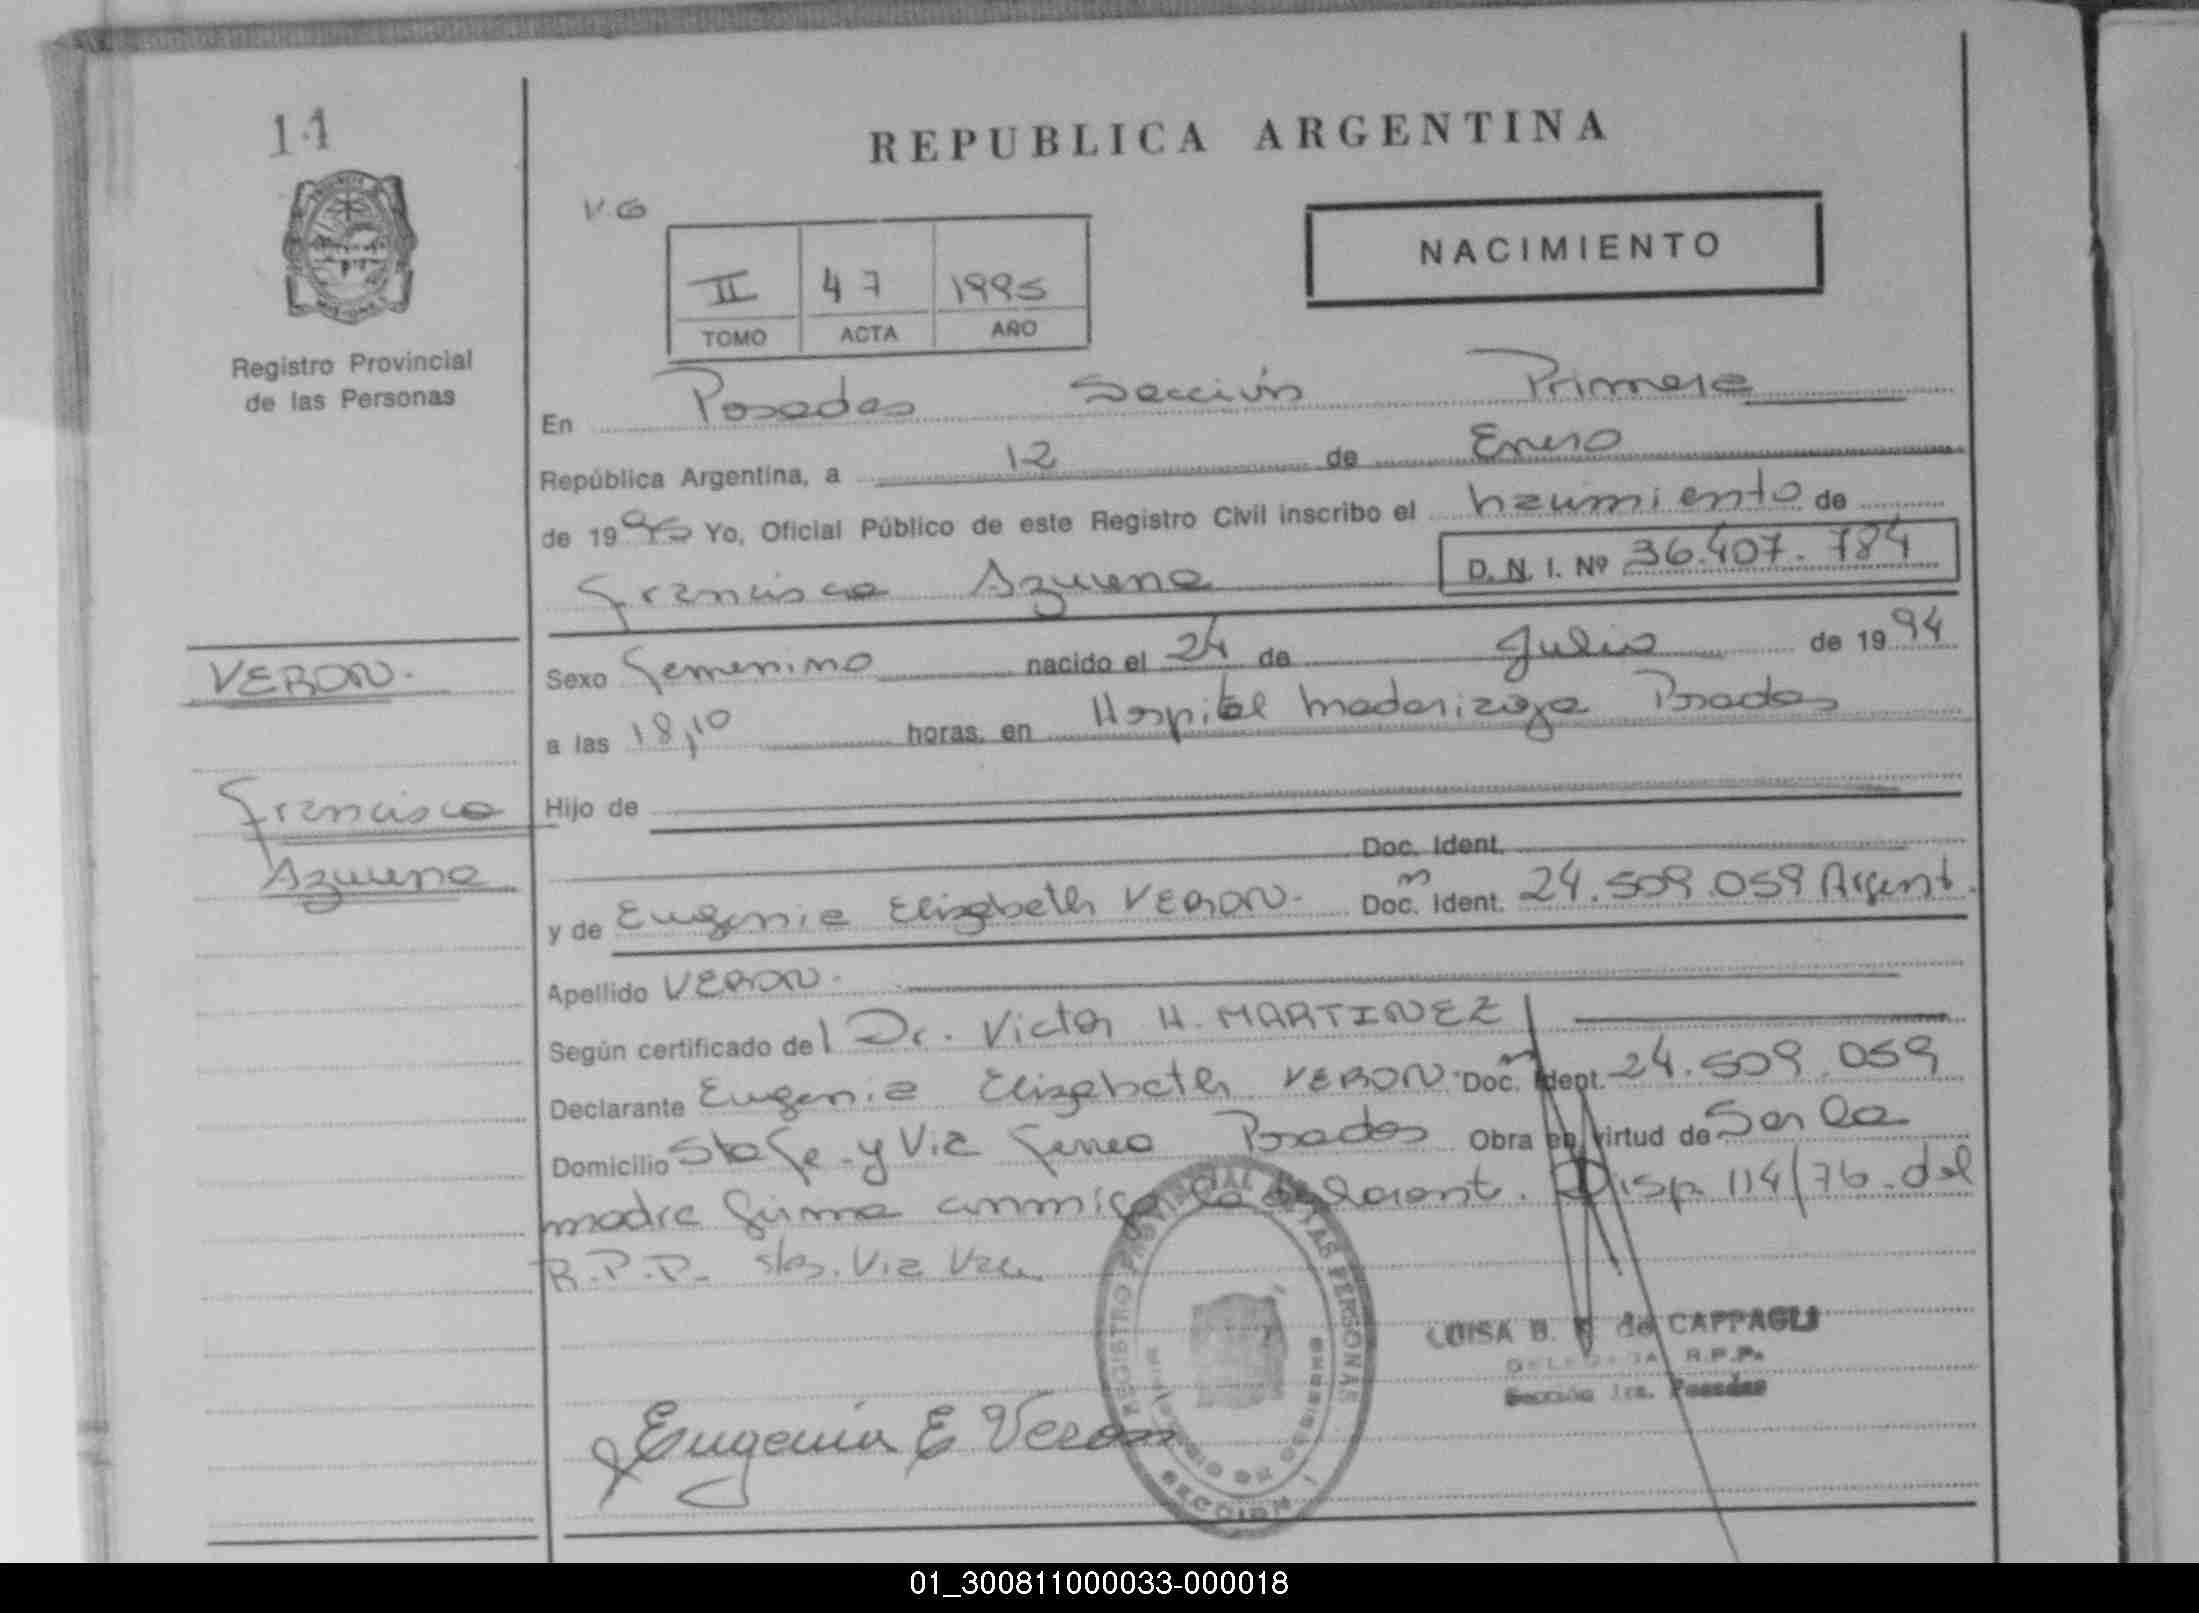 11
REPUBLICA ARGENTINA
V.G
NACIMIENTO
II 47 1995
TOMO ACTA AÑO
Registro Provincial
de las Personas
En Posadas Sección Primera
República Argentina, a 12 de Enero
de 1995 Yo, Oficial Público de este Registro Civil inscribo el nacimiento de
Francisca Azucena D. N. I. Nº 36.407.784
VERON.
Sexo femenino nacido el 24 de Julio de 1994
a las 18,10 horas, en Hospital Madariaga Posadas
Francisca
Hijo de
Doc. Ident.
Azucena
y de Eugenia Elizabeth VERON. Doc. Ident. 24.509.059 Argent.
Apellido VERON.
Según certificado del Dr. Victor H. MARTINEZ
Declarante Eugenia Elizabeth VERON. Doc. Ident. 24.509.059
Domicilio Sta Fe y Via ferrea Posadas Obra en virtud de Ser la
madre firma conmigo la declarant. Disp. 114/76 del
R.P.P.
REGISTRO PROVINCIAL DE LAS PERSONAS
SECCION 1
LUISA B. de CAPPAGLI
DELEGADA R.P.P.
Sección 1ra. Posadas
Eugenia E Veron
01_300811000033-000018